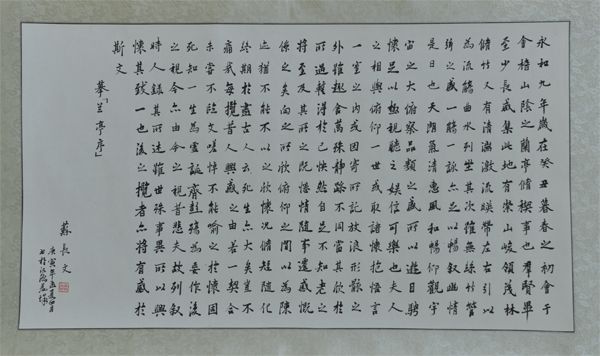 永和九年歲在癸丑暮春之初會于
會稽山陰之蘭亭脩稧事也群賢畢
至少長咸集此地有崇山峻領茂林
脩竹又有清湍激流暎帶左右引以
為流觴曲水列坐其次雖無絲竹管
絃之盛一觴一詠亦足以暢叙幽情
是日也天朗氣清惠風和暢仰觀宇
宙之大俯察品類之盛所以遊目騁
懷足以極視聽之娛信可樂也夫人
之相與俯仰一世或取諸懷抱悟言
一室之內或因寄所託放浪形骸之
外雖趣舍萬殊靜躁不同當其欣於
所遇蹔得於己怏然自足不知老之
將至及其所之既惓情隨事遷感慨
係之矣向之所欣俛仰之間以為陳
迹猶不能不以之興懷況脩短隨化
終期於盡古人云死生亦大矣豈不
痛哉每攬昔人興感之由若一契合
未嘗不臨文嗟悼不能喻之於懷固
死知一生為虛誕齊彭殤為妄作後
之視今亦由今之視昔悲夫故列叙
時人錄其所述雖世殊事異所以興
懷其致一也後之攬者亦將有感於
斯文
摹「兰亭序」
蘇長文
庚寅年